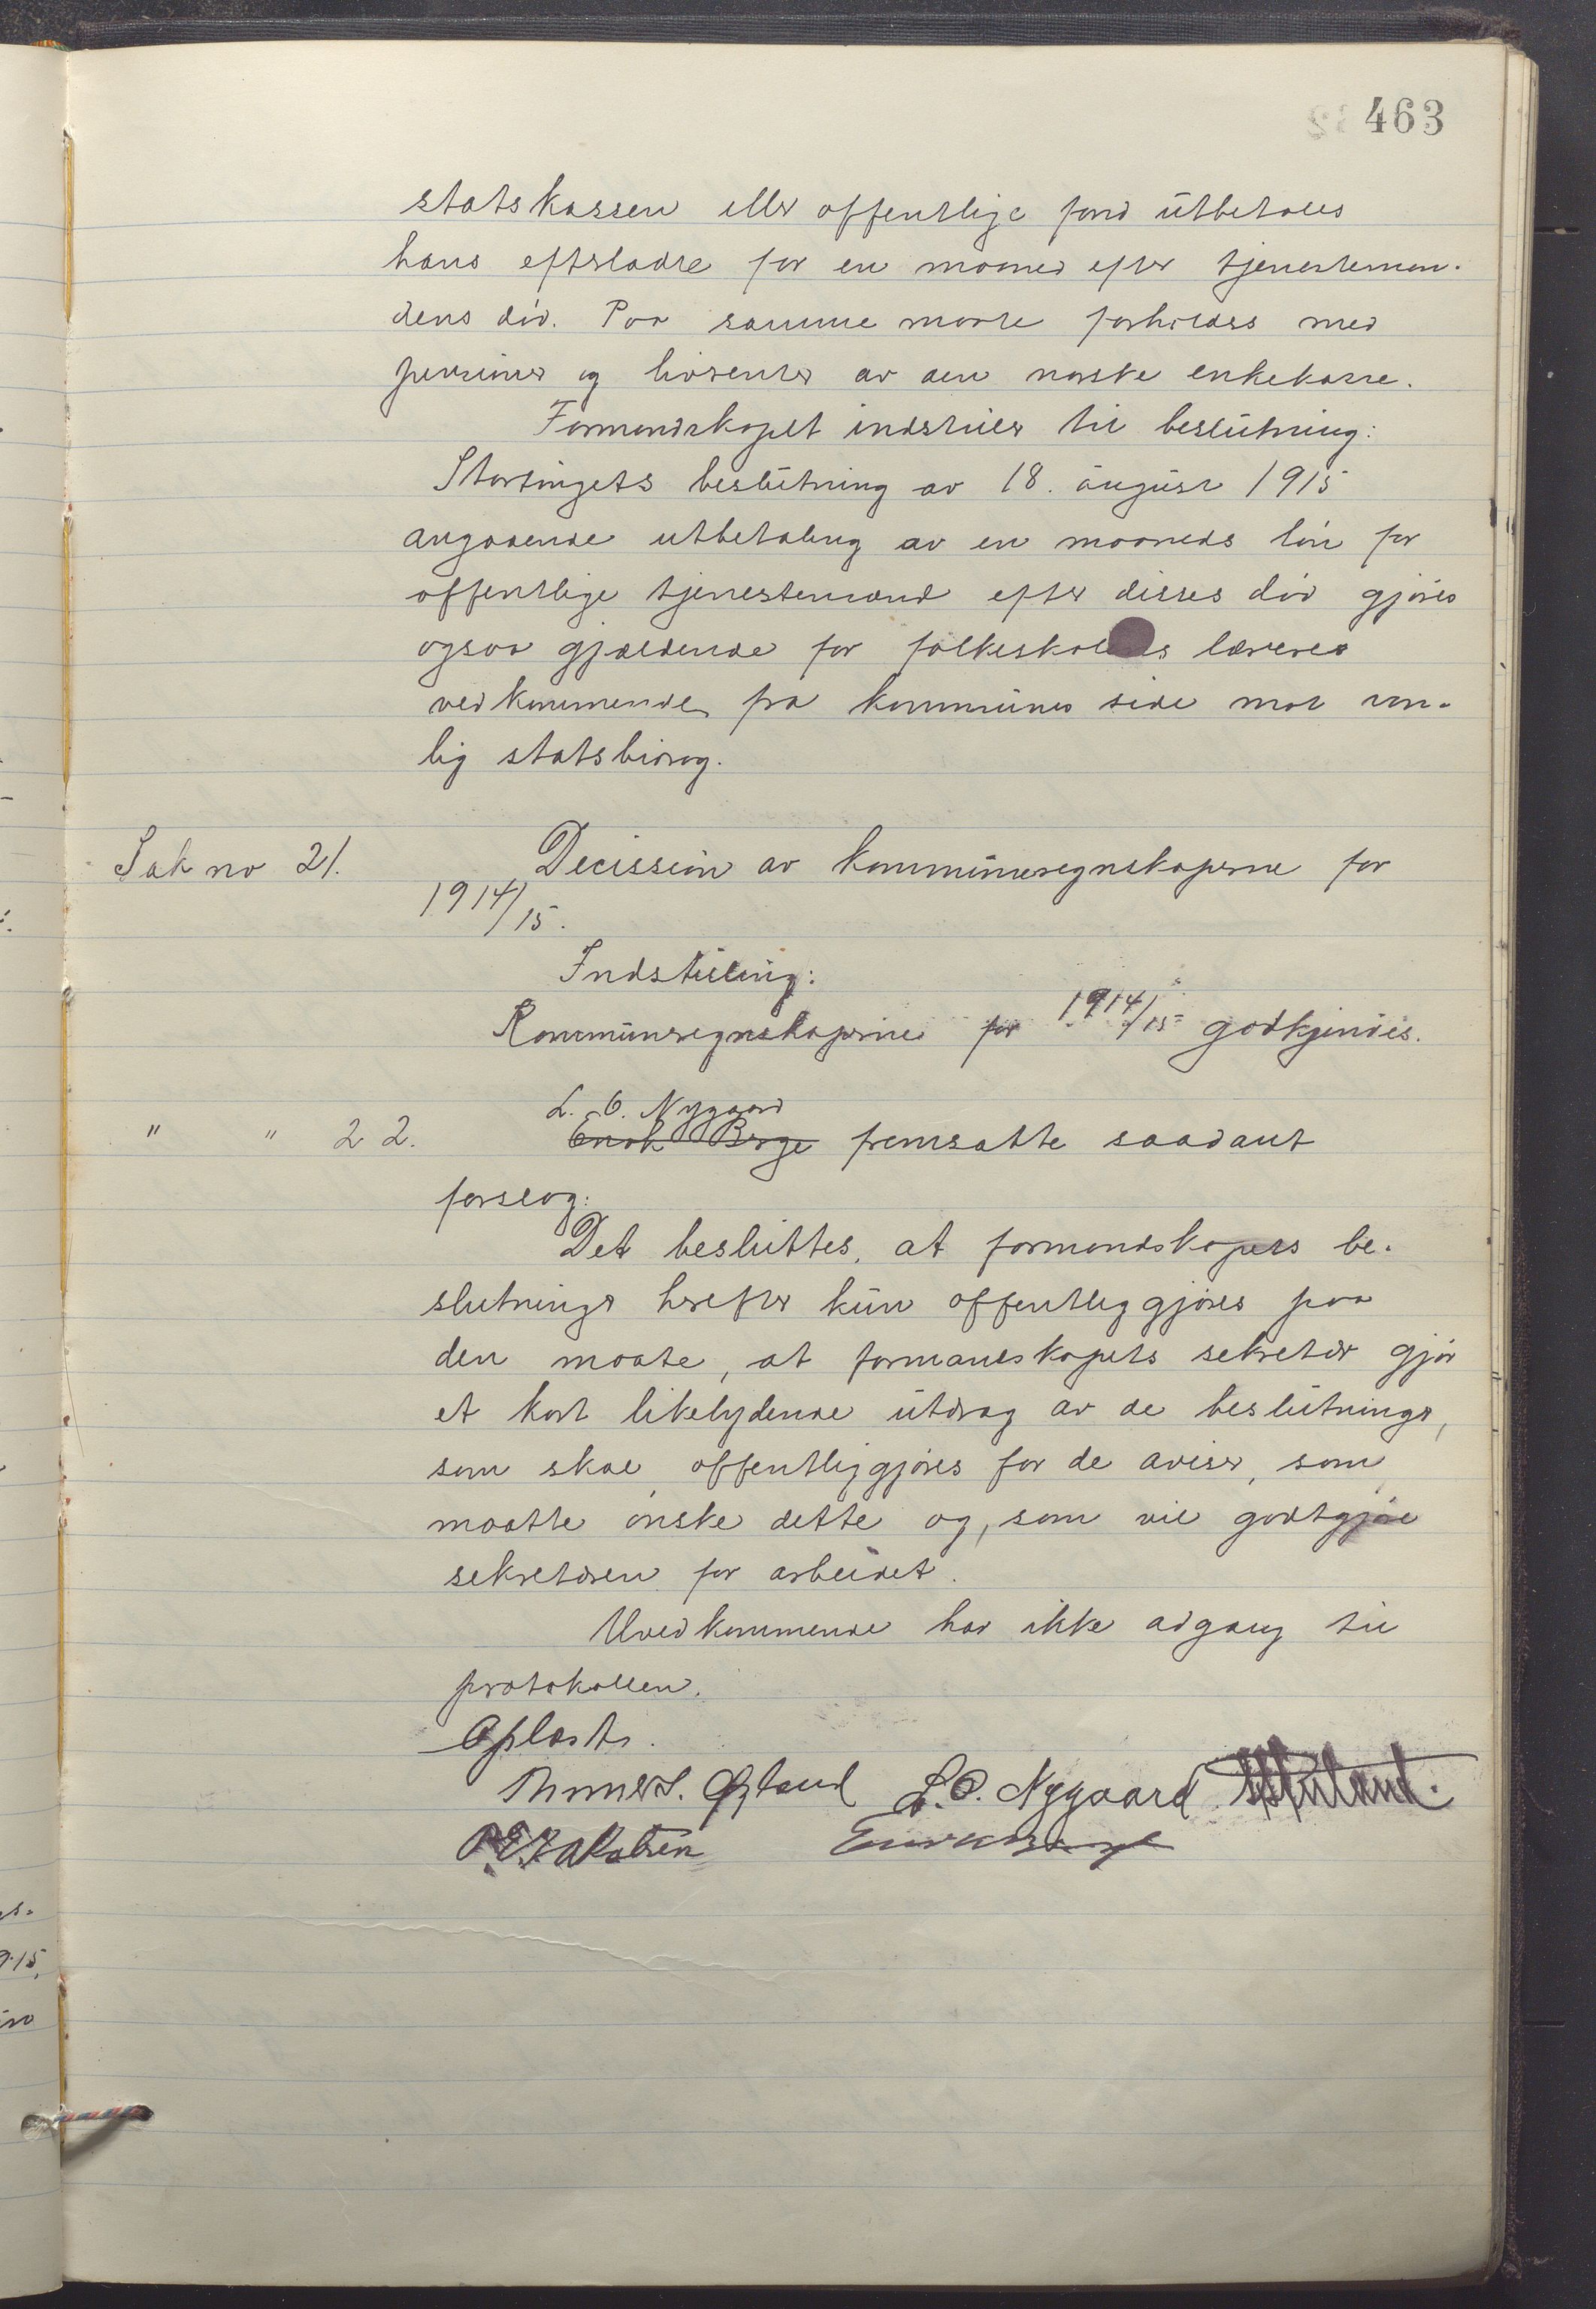 463
statskassen eller offentlige fond utbetales
hans efterladte for en maaned efter tjenesteman-
dens död. Paa samme maate forholdes med
pensioner og livrenter av den norske enkekasse.
Formandskapet indstiller til beslutning:
Stortingets beslutning av 18. august 1915
angaaende utbetaling av en maaneds lön for
offentlige tjenestemænd efter disses död gjöres
ogsaa gjældende for folkeskolens læreres
vedkommende fra kommunes side mot van-
lig statsbidrag.
Sak no 21. Decission av kommuneregnskaperne for
1914/15.
Indstilling:
Kommuneregnskaperne for 1914/15 godkjendes.
L. O. Nygaard
" " 22. Enok Berge fremsatte saadant
forslag:
Det besluttes, at formandskapets be-
slutninger herefter kun offentliggjöres paa
den maate, at formandskapets sekretær gjör
et kort likelydende utdrag av de beslutninger,
som skal offentliggjöres for de aviser, som
maatte önske dette og, som vil godtgjöre
sekretæren for arbeidet.
Uvedkommende har ikke adgang til
protokollen.
Oplæst.
L. O. Nygaard
Enok Berge